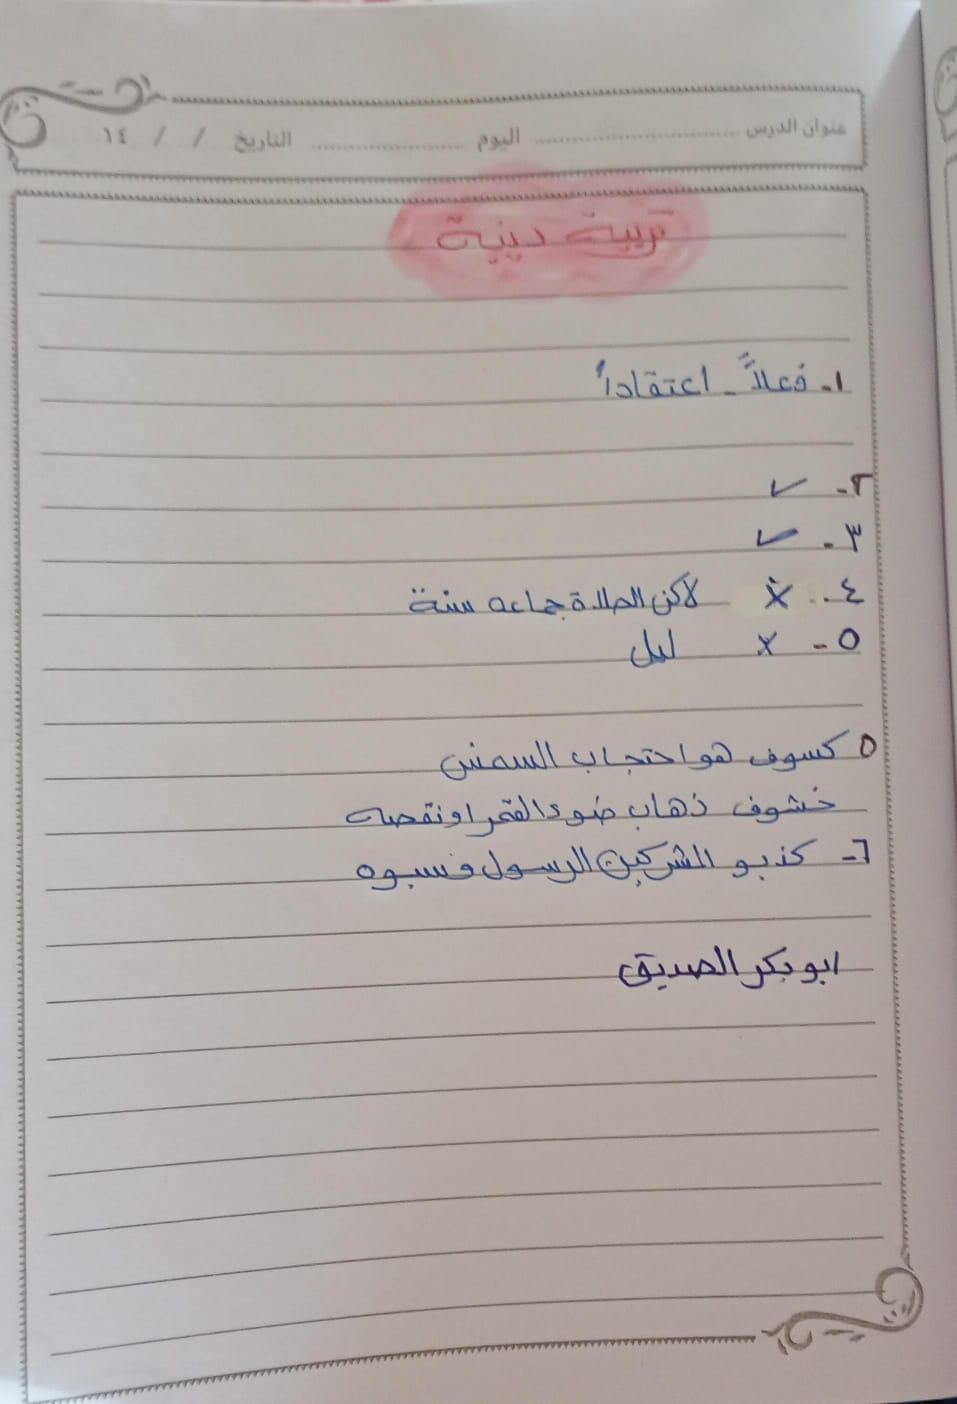 عنوان الدرس ........................ اليوم ........................ التاريخ / / ١٤
تربية دينية
١- فعلاً - اعتقاداً
٢- ✓
٣- ✓
٤- x لاكن الصلاة جماعه سنة
٥- x ليل
٥ كسوف هو احتجاب السمش
خشوف ذهاب ضوء القمر او نقصه
٦- كذبو المشركين الرسول وسبوه
ابو بكر الصديق